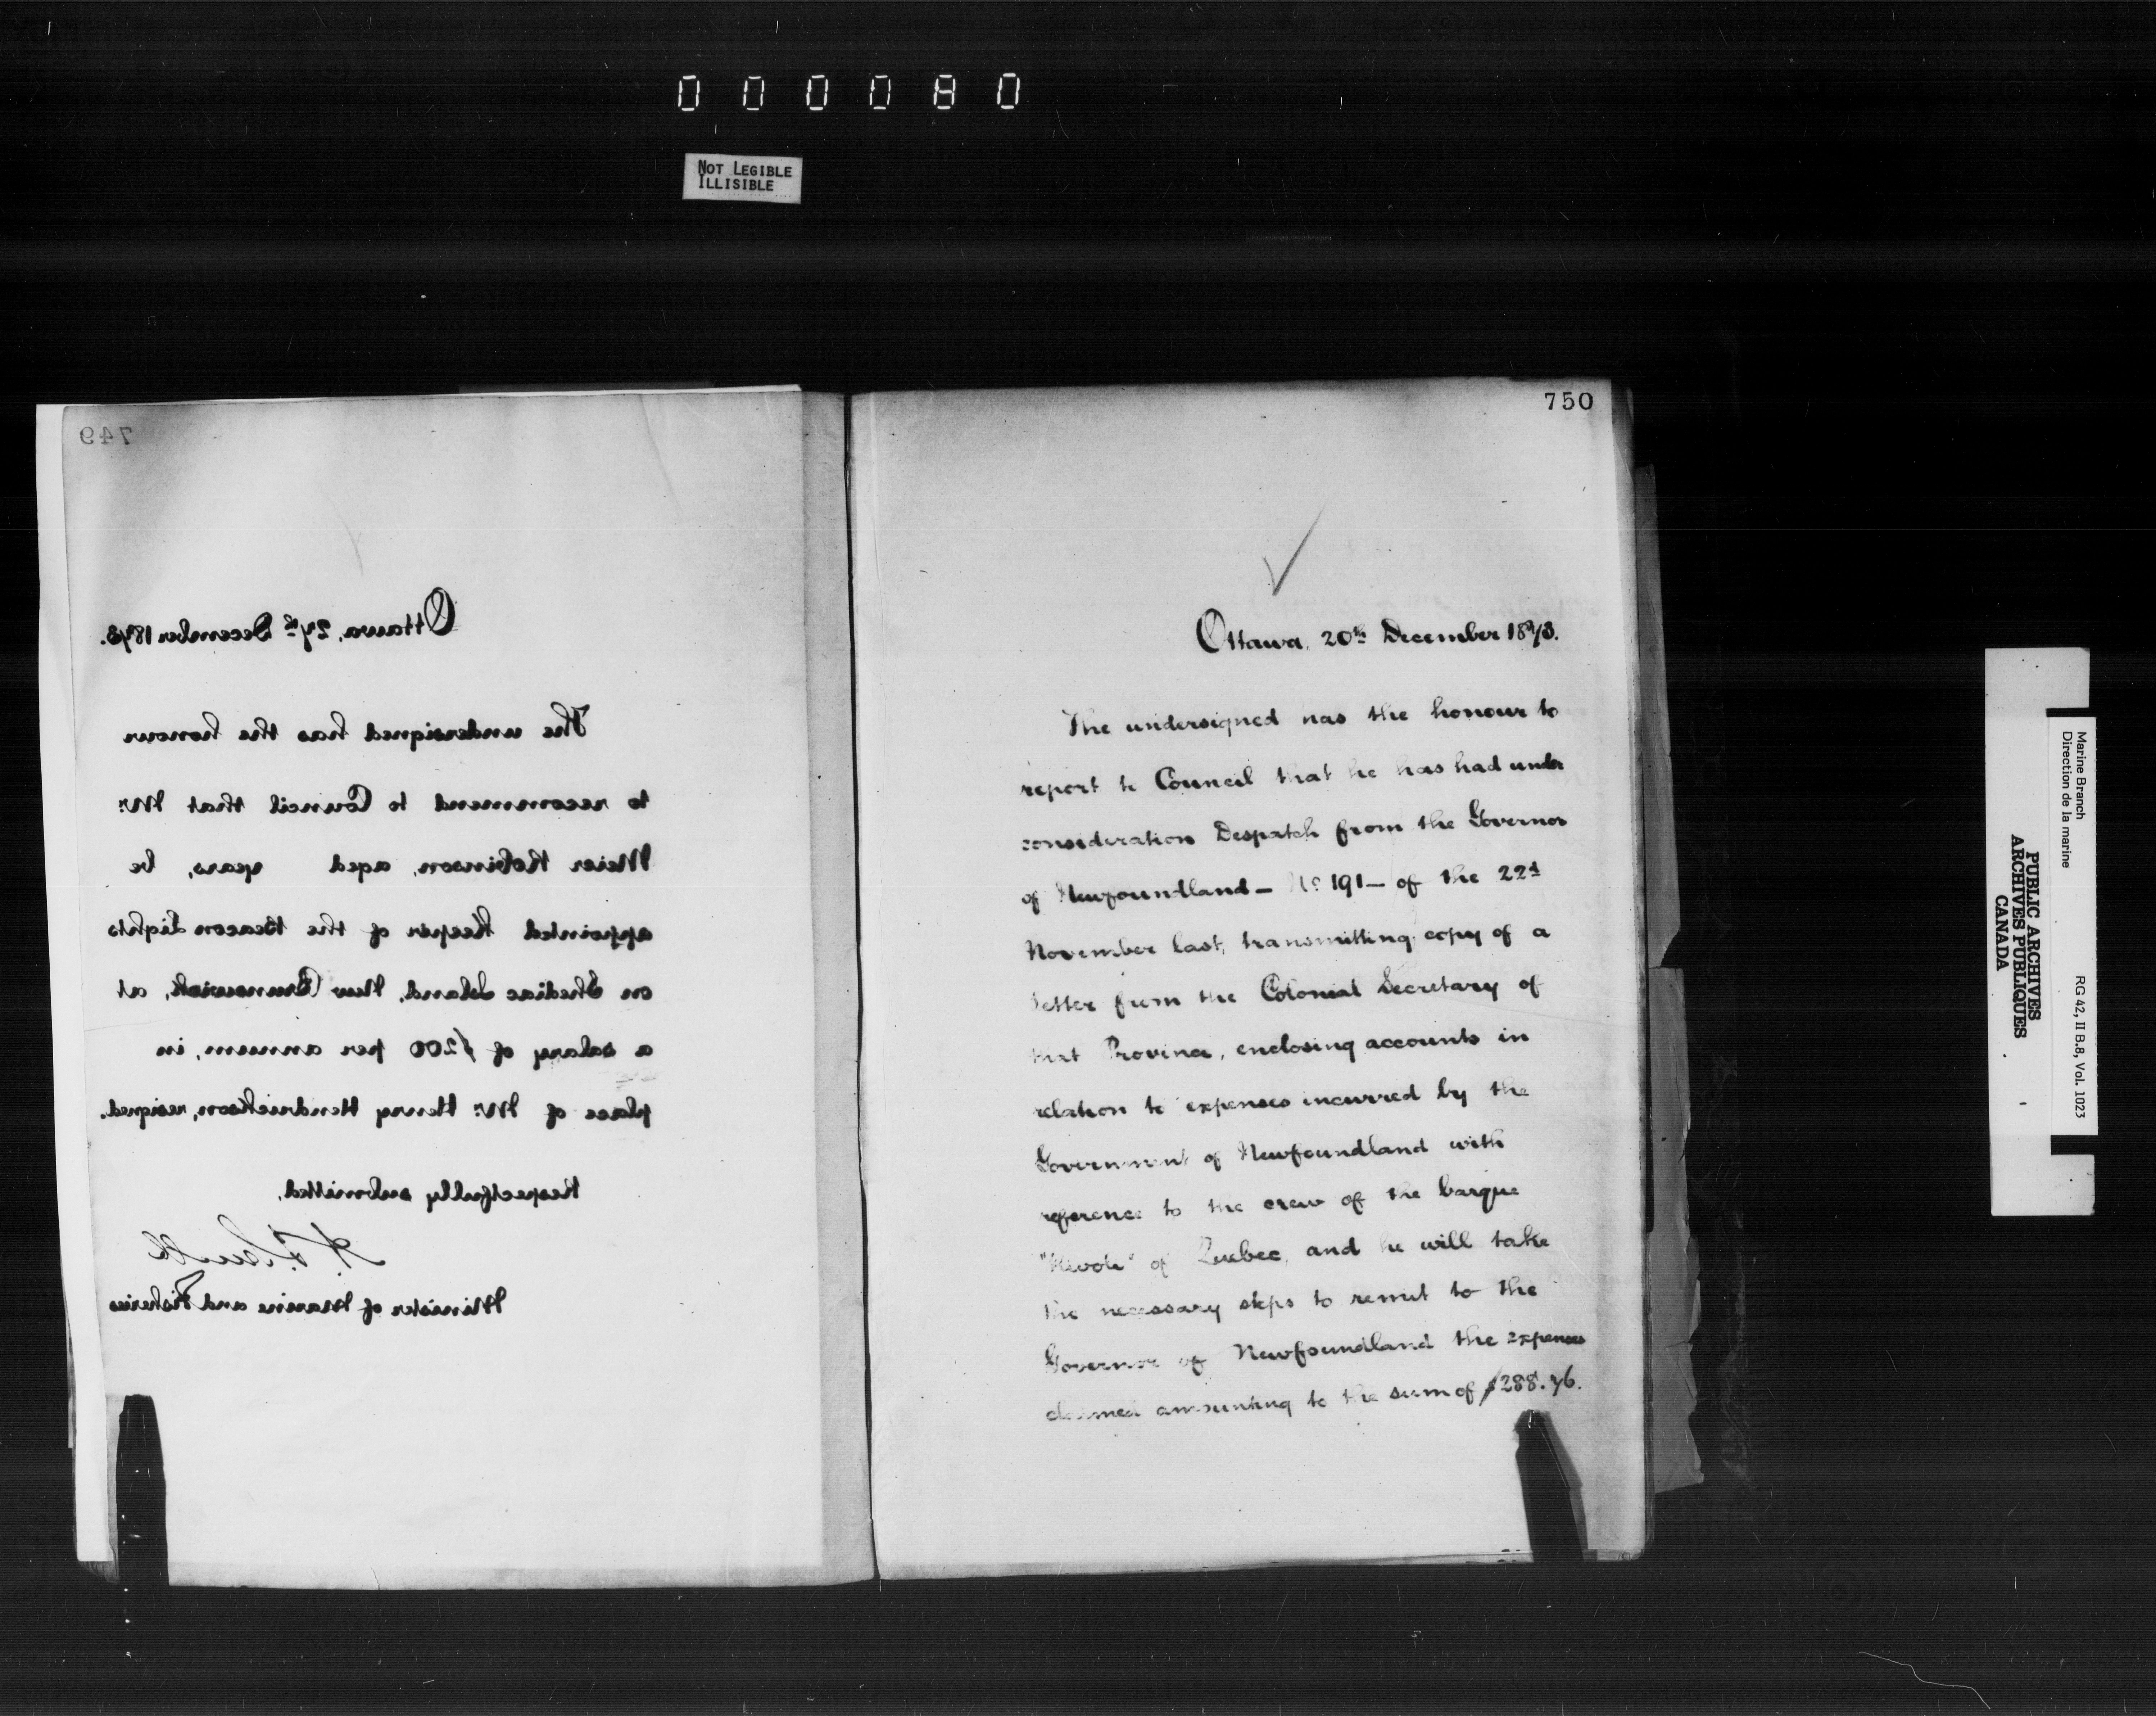 000080
NOT LEGIBLE
ILLISIBLE
749
Ottawa, 27th December 1873.
The undersigned has the honour
to recommend to Council that Mr.
Meier Robinson, aged years, be
appointed Keeper of the Beacon Lights
on Shediac Island, New Brunswick, at
a salary of $200 per annum, in
place of Mr. Henry Hendrickson, resigned.
Respectfully submitted,
Minister of Marine and Fisheries
750
Ottawa, 20th December 1873.
The undersigned has the honour to
report to Council that he has had under
consideration Despatch from the Governor
of Newfoundland — No 191 — of the 22d
November last, transmitting copy of a
letter from the Colonial Secretary of
that Province, enclosing accounts in
relation to expenses incurred by the
Government of Newfoundland with
reference to the crew of the barque
of Quebec, and he will take
the necessary steps to remit to the
Governor of Newfoundland the expenses
claimed amounting to the sum of $288.76.
Marine Branch
Direction de la marine
RG 42, II B.8, Vol. 1023
PUBLIC ARCHIVES
ARCHIVES PUBLIQUES
CANADA